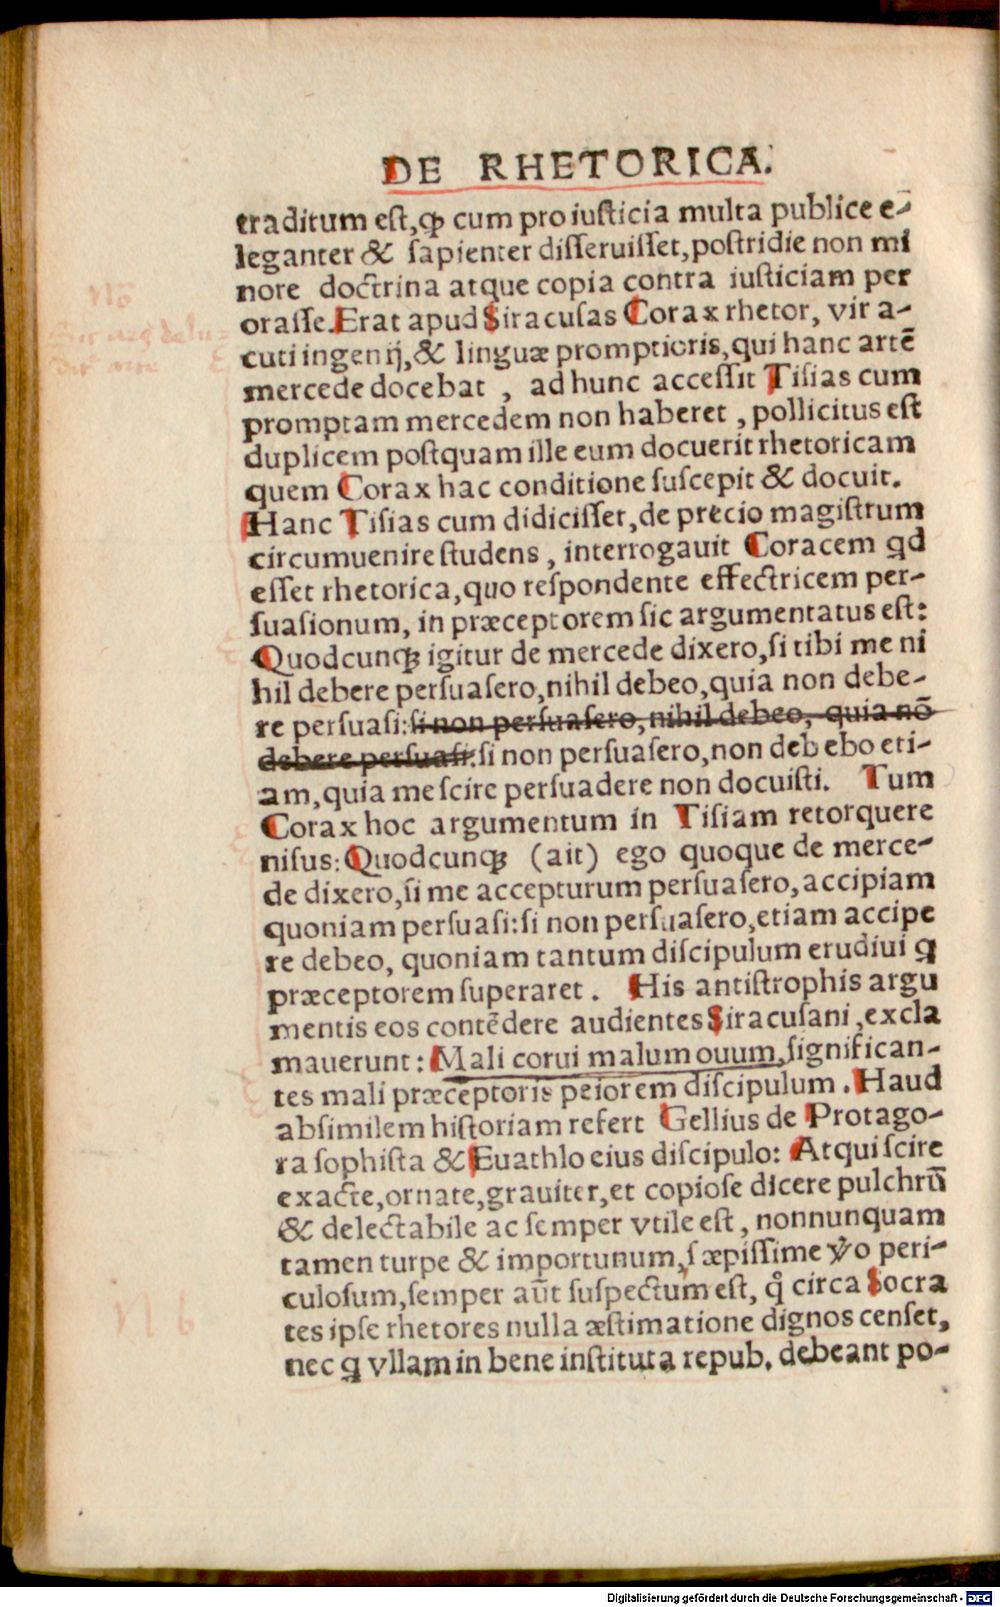 DE RHETORICA.
traditum est,ꝙ cum pro iusticia multa publice e-
leganter & sapienter disseruisset,postridie non mi
nore doctrina atque copia contra iusticiam per
orasse.Erat apud Siracusas Corax rhetor, vir a-
cuti ingenij,& linguæ promptioris,qui hanc artē
mercede docebat , ad hunc accessit Tisias cum
promptam mercedem non haberet , pollicitus est
duplicem postquam ille eum docuerit rhetoricam
quem Corax hac conditione suscepit & docuit.
Hanc Tisias cum didicisset,de precio magistrum
circumuenire studens , interrogauit Coracem qd
esset rhetorica,quo respondente effectricem per-
suasionum, in præceptorem sic argumentatus est:
Quodcunqꝫ igitur de mercede dixero,si tibi me ni
hil debere persuasero,nihil debeo,quia non debe-
re persuasi:si non persuasero, nihil debeo, quia nō
debere persuasi:si non persuasero,non debebo eti-
am,quia me scire persuadere non docuisti. Tum
Corax hoc argumentum in Tisiam retorquere
nisus: Quodcunqꝫ (ait) ego quoque de merce-
de dixero,si me accepturum persuasero,accipiam
quoniam persuasi:si non persuasero,etiam accipe
re debeo, quoniam tantum discipulum erudiui ꝗ
præceptorem superaret . His antistrophis argu
mentis eos contēdere audientes Siracusani ,excla
mauerunt: Mali corui malum ouum,significan-
tes mali præceptoris peiorem discipulum . Haud
absimilem historiam refert Gellius de Protago-
ra sophista & Euathlo eius discipulo: Atqui scire
exacte,ornate,grauiter,et copiose dicere pulchrū
& delectabile ac semper vtile est , nonnunquam
tamen turpe & importunum,sæpissime v̾o peri-
culosum,semper aūt suspectum est, ꝙ circa Socra
tes ipse rhetores nulla æstimatione dignos censet,
nec ꝗ vllam in bene instituta repub. debeant po-
Nō
N b
Digitalisierung gefördert durch die Deutsche Forschungsgemeinschaft - DFG